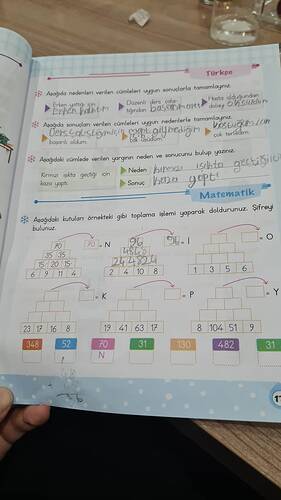 Türkçe
Aşağıda nedenleri verilen cümleleri uygun sonuçlarla tamamlayınız.
Erken yattığı için
Düzenli ders çalış-
tığından
Hasta olduğundan
dolayı
Aşağıda sonuçları verilen cümleleri uygun nedenlerle tamamlayınız.
başarılı oldum.
çok terledim.
Aşağıdaki cümlede verilen yargının neden ve sonucunu bulup yazınız.
Kırmızı ışıkta geçtiği için
kaza yaptı.
Neden kırmızı ışıkta geçtiği için
Sonuç kaza yaptı
Matematik
Aşağıdaki kutuları örnekteki gibi toplama işlemi yaparak doldurunuz. Şifreyi
bulunuz.
70 70 = N
35 35
15 20 15
6 9 11 4
96 96 = I
48 48
24 24 24
2 4 10 8
= O
1 3 5 6
= K
23 17 16 8
= P
19 41 63 17
= Y
8 104 51 9
348 52 70 31 130 482 31
N